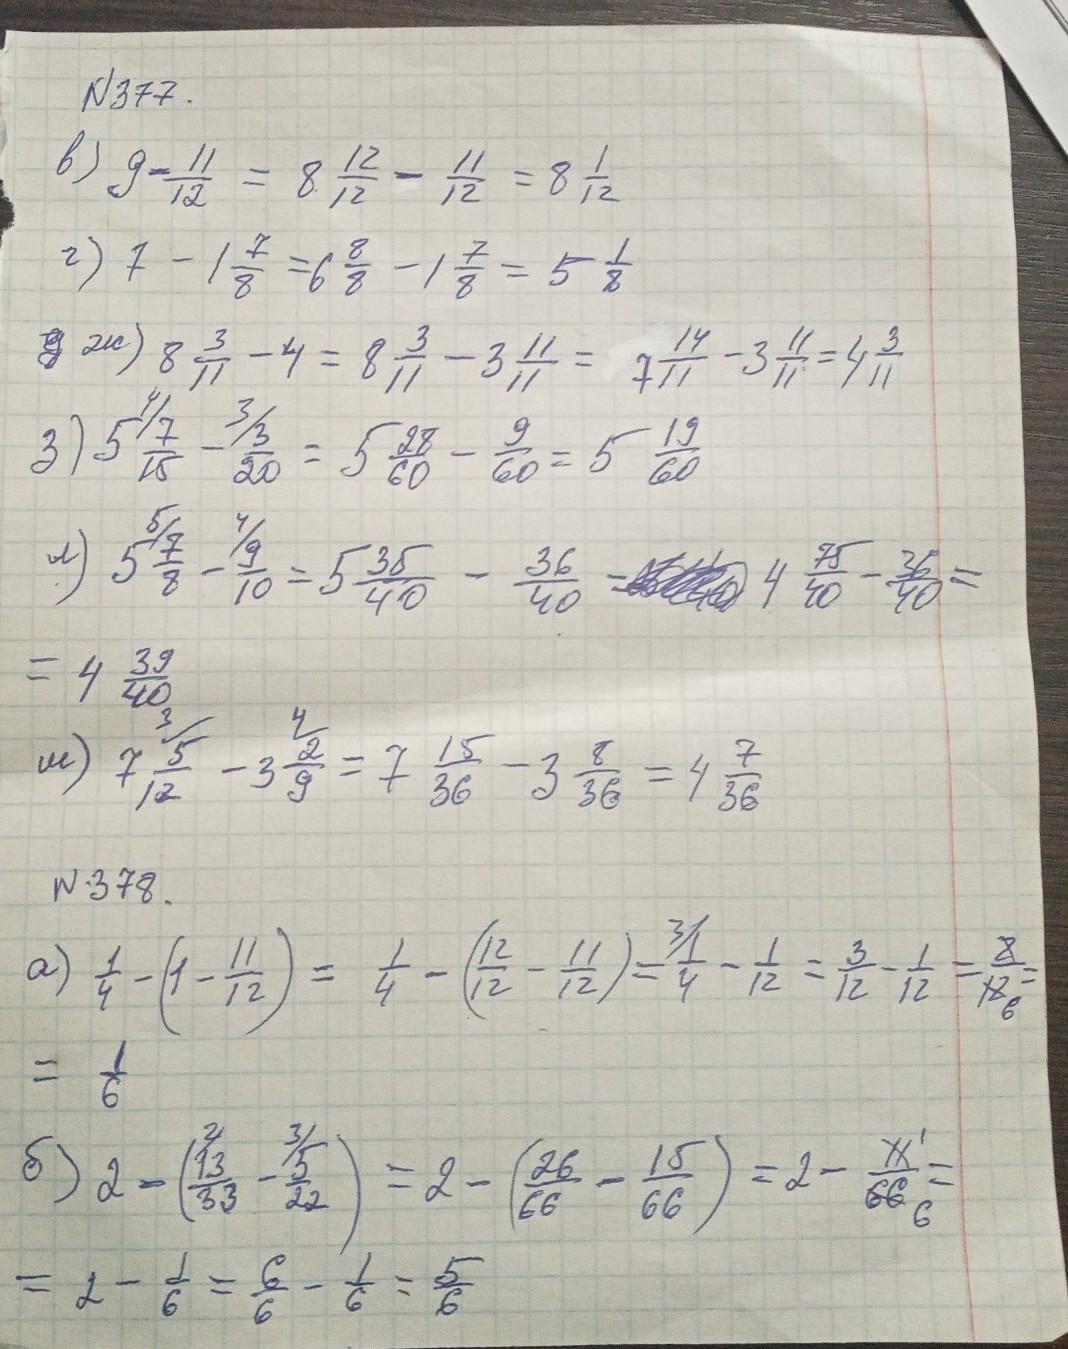 N377.
в) 9 - 11/12 = 8 12/12 - 11/12 = 8 1/12
г) 7 - 1 7/8 = 6 8/8 - 1 7/8 = 5 1/8
ж) 8 3/11 - 4 = 8 3/11 - 3 11/11 = 7 14/11 - 3 11/11 = 4 3/11
з) 5 4/ 7/15 - 3/ 3/20 = 5 28/60 - 9/60 = 5 19/60
л) 5 5/ 7/8 - 4/ 9/10 = 5 35/40 - 36/40 = 4 75/40 - 36/40 =
= 4 39/40
м) 7 3/ 5/12 - 3 4/ 2/9 = 7 15/36 - 3 8/36 = 4 7/36
N378.
а) 1/4 - (1 - 11/12) = 1/4 - (12/12 - 11/12) = 3/ 1/4 - 1/12 = 3/12 - 1/12 = 2/12 6 =
= 1/6
б) 2 - (2/ 13/33 - 3/ 5/22) = 2 - (26/66 - 15/66) = 2 - 11/66 1 6 =
= 2 - 1/6 = 6/6 - 1/6 = 5/6